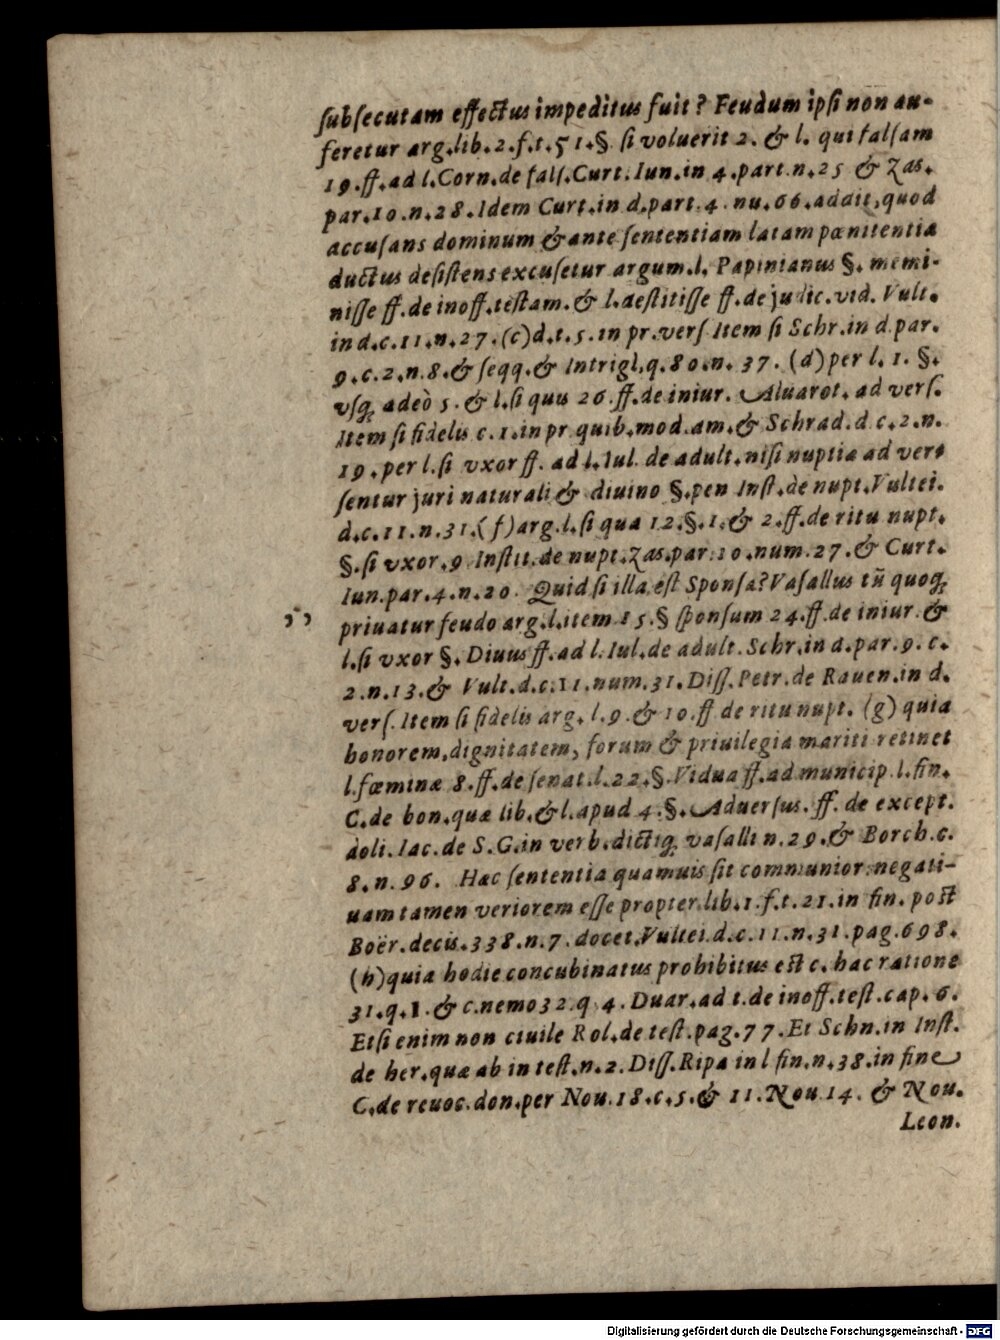 ſubſecutam effectus impeditus fuit? Feudum ipſi non au-
feretur arg.lib.2.f.t.51.§. ſi voluerit 2. & l. qui falſam
19.ff.ad l.Corn.de falſ.Curt.Iun.in 4.part.n.25 & Zas.
par.10.n.28.Idem Curt.in d.part.4.nu.66.addit,quod
accuſans dominum & ante ſententiam latam pœnitentia
ductus deſiſtens excuſetur argum.l. Papinianus §. memi-
niſſe ff.de inoff.teſtam.& l.deſtitiſſe ff.de judic.vid. Vult.
in d.c.11.n.27.(c)d.t.5.in pr.verſ Item ſi Schr.in d.par.
9.c.2.n.8.& ſeqq.& Intrigl.q.80.n. 37. (d) per l. 1. §.
vſq; adeò 5.& l.ſi quis 26.ff.de iniur. Aluarot. ad verſ.
Item ſi fidelis c.1.in pr quib.mod.am.& Schrad.d.c.2.n.
19.per l.ſi vxor ff. ad l.Iul. de adult.niſi nuptiæ ad ver-
ſentur juri naturali & diuino §.pen Inſt.de nupt.Vultei.
d.c.11.n.31.(f)arg.l.ſi qua 12.§.1.& 2.ff.de ritu nupt.
§.ſi vxor.9 Inſtit.de nupt.Zas.par.10.num.27.& Curt.
Iun.par.4.n.20. Quid ſi illa eſt Sponſa?Vaſallus tñ quoq;
priuatur feudo arg.l.item 15.§ ſponſum 24.ff.de iniur.&
l.ſi vxor §.Diuus ff.ad l.Iul.de adult.Schr.in d.par.9.c.
2.n.13.& Vult.d.c.11.num.31.Diſſ.Petr.de Rauen.in d.
verſ.Item ſi fidelis arg.l.9.& 10.ff de ritu nupt. (g) quia
honorem,dignitatem, forum & priuilegia mariti retinet
l.fœminæ 8.ff.de ſenat.l.22.§.Vidua ff.ad municip.l.fin.
C.de bon.quæ lib.& l.apud 4.§. Aduerſus.ff. de except.
doli.Iac.de S.G.in verb.dictiq; vaſalli n.29.& Borch.c.
8.n.96. Hæc ſententia quamuis ſit communior:negati-
uam tamen veriorem eſſe propter.lib.1.f.t.21.in fin. poſt
Boër.decis.338.n.7.docet.Vultei.d.c.11.n.31.pag.698.
(h)quia hodie concubinatus prohibitus eſt c.hac ratione
31.q.1.& c.nemo 32.q 4. Duar.ad t.de inoff.teſt.cap.6.
Etſi enim non ciuile Rol.de teſt.pag.77.Et Schn.in Inſt.
de her.quæ ab in teſt.n.2.Diſſ.Ripa in l fin.n.38.in fine
C.de reuoc.don.per Nou.18.c.5.& 11.Nou 14. & Nou.
Leon.
Digitalisierung gefördert durch die Deutsche Forschungsgemeinschaft - DFG